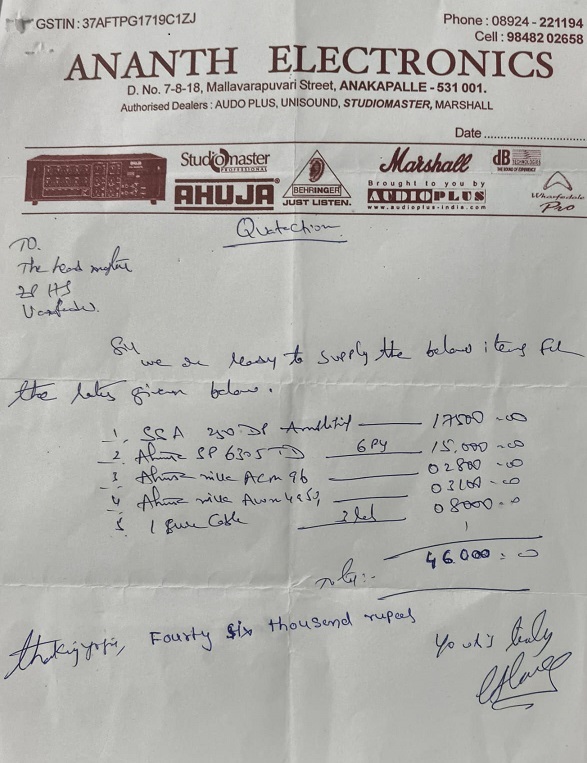 GSTIN : 37AFTPG1719C1ZJ
Phone : 08924 - 221194
Cell : 98482 02658
ANANTH ELECTRONICS
D. No. 7-8-18, Mallavarapuvari Street, ANAKAPALLE - 531 001.
Authorised Dealers : AUDO PLUS, UNISOUND, STUDIOMASTER, MARSHALL
Date
Studiomaster
PROFESSIONAL
AHUJA
BEHRINGER
JUST LISTEN.
Marshall
Brought to you by
AUDIOPLUS
www.audioplus-india.com
dB TECHNOLOGIES
THE SOUND OF EXPERIENCE
Wharfedale
Pro
Quatection
TO.
The head
ZP HS
Sir
we are ready to supply the below items
the rates given below.
1 SSA 250 DP 17500-00
2 Ahuja SP 6305 TD 6 Py 15.000-00
3 Ahuja mike ACM 96 02800-00
4 Ahuja mike 03100-00
5 Cable 08000-00
46.000-00
Fourty six thousand rupees
yours truly